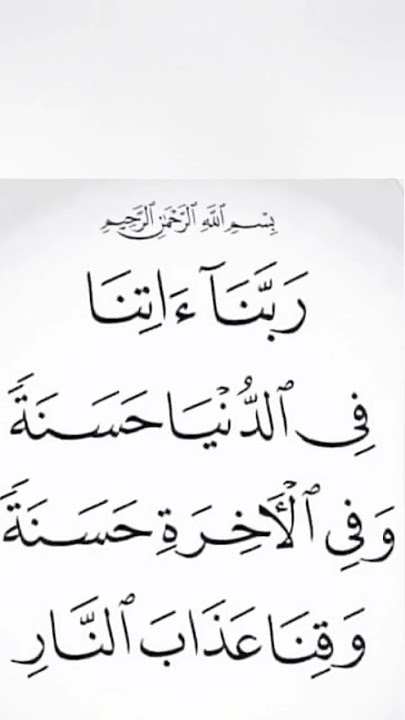 بِسْمِ ٱللَّهِ ٱلرَّحْمَٰنِ ٱلرَّحِيمِ
رَبَّنَآ ءَاتِنَا
فِى ٱلدُّنْيَا حَسَنَةً
وَفِى ٱلْأَخِرَةِ حَسَنَةً
وَقِنَا عَذَابَ ٱلنَّارِ